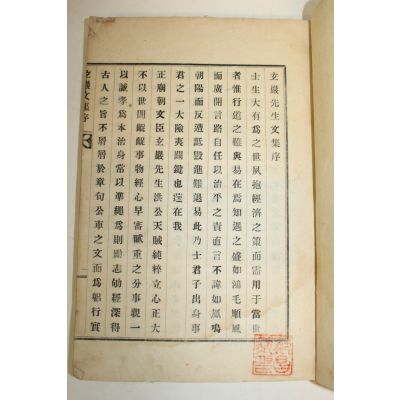 玄巖先生文集序
士生大有爲之世夙抱經濟之策而需用于當世
者惟行道之難與易在爲知遇之盛如鴻毛順風
而廣開言路自任以治平之責直言不諱如鳳鳴
朝陽而反遭詆毀進難退易此乃士君子出身事
君之一大險夷關鍵也迺在我
正廟朝文臣玄巖先生洪公天賦純粹立心正大
不以世閒齷齪事物經心早審賦重之分事親一
以誠孝爲本治身常以準繩爲則勵志劬經深得
古人之旨不屑屑於章句公車之文而爲躬行實
玄巖文集序